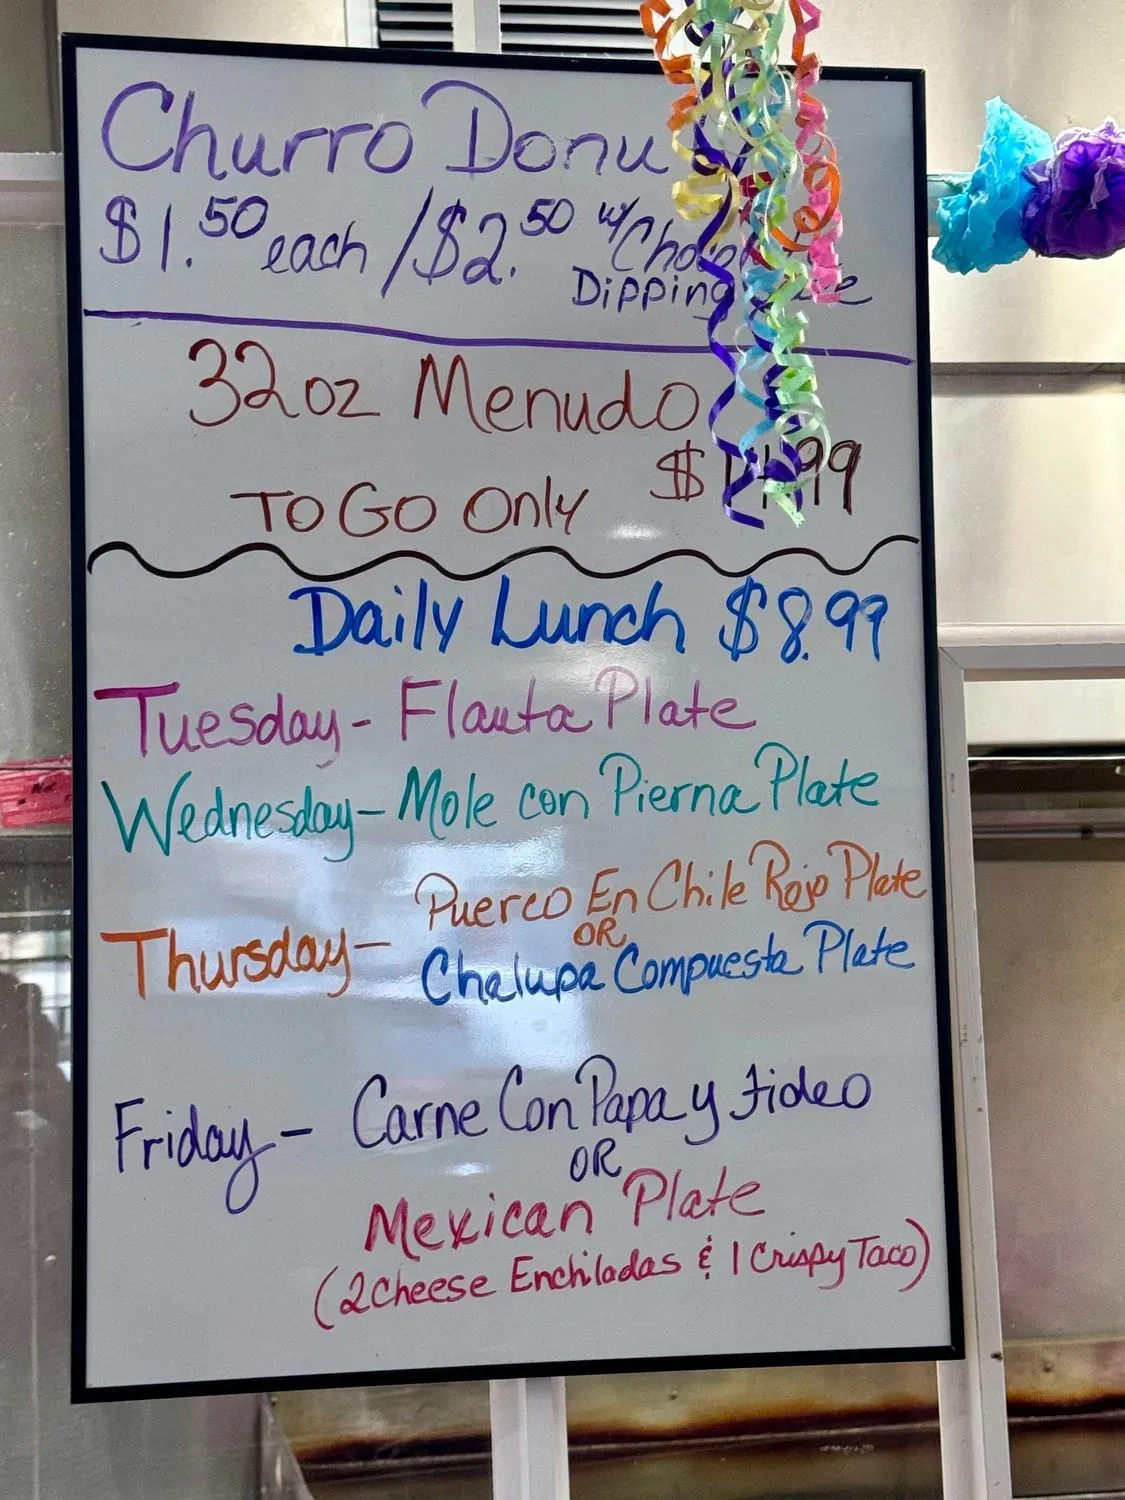 Churro Donu
$1.50 each / $2.50 w/
Dipping
32oz Menudo
TO GO Only $14.99
Daily Lunch $8.99
Tuesday - Flauta Plate
Wednesday - Mole con Pierna Plate
Puerco En Chile Rojo Plate
OR
Thursday -
Chalupa Compuesta Plate
Friday - Carne Con Papa y fideo
OR
Mexican Plate
(2 Cheese Enchiladas & 1 Crispy Taco)